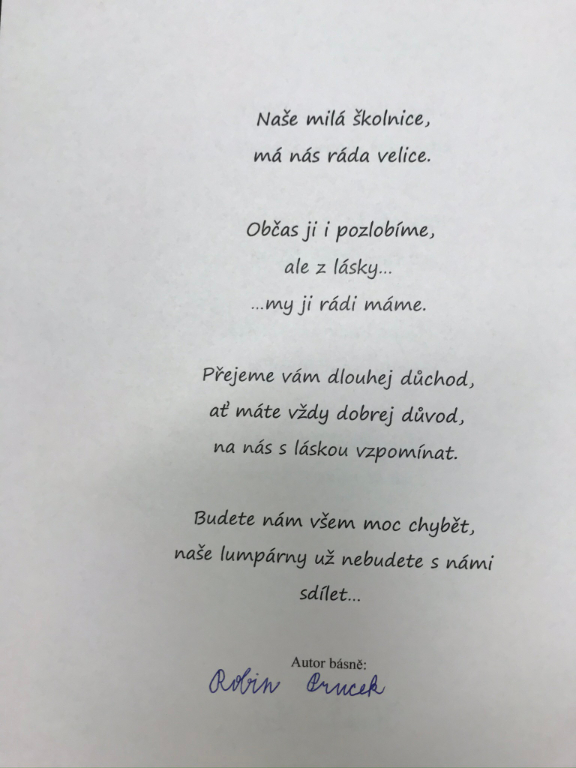 Naše milá školnice,
má nás ráda velice.
Občas ji i pozlobíme,
ale z lásky...
...my ji rádi máme.
Přejeme vám dlouhej důchod,
ať máte vždy dobrej důvod,
na nás s láskou vzpomínat.
Budete nám všem moc chybět,
naše lumpárny už nebudete s námi
sdílet...
Autor básně:
Robin